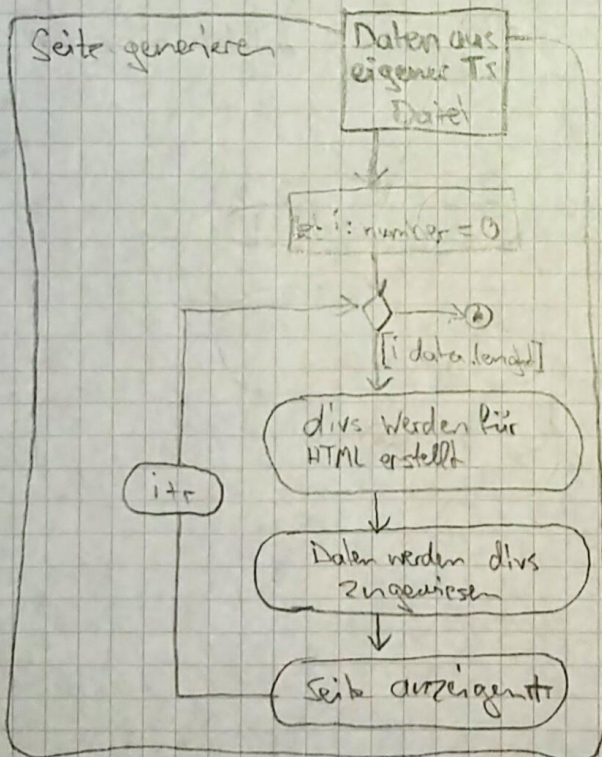 Seite generieren
Daten aus
eigener TS
Datei
let i: number = 0
[i data.lenght]
divs werden für
HTML erstellt
i++
Daten werden divs
zugewiesen
Seite anzeigen